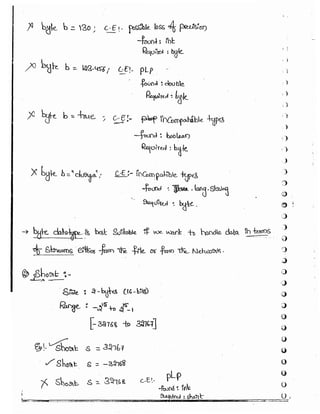 ✗ byte b = 130; C.E:- possible loss of precision
-found : int
Required : byte.
✗ byte b = 123.456; C.E:- PLP
found : double
Required : byte
✗ byte b = true ; C.E:- incompatible types
-found : boolean
Required : byte
✗ byte b = "durga"; C.E:- incompatible types
-found : java.lang.String
Required : byte.
→ byte datatype is best suitable if we want to handle data in terms
of Streams either from the file or from the Network.
② Short :-
Size : 2-bytes (16-bits)
Range : -2^15 to 2^15-1
[-32768 to 32767]
Eg:- ✓ Short S = 32767
✓ Short S = -32768
✗ Short S = 32768 C.E:- PLP
-found : int
Required : short